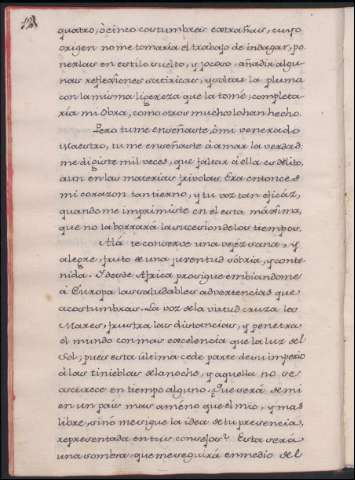 quatro, ò cinco costumbres extrañas, cuyo
origen no me tomaría el trabajo de indagar, po-
nerlas en estilo suelto, y jocoso, añadir algu-
nas reflexiones satiricas, y soltar la pluma
con la misma ligereza que la tomé, completa-
ria mi Obra, como otros muchos lo han hecho.
Pero tu me enseñaste, ò mi venerado
Maestro, tu me enseñaste à amar la verdad:
me digiste mil veces, que faltar à ella es delito,
aun en las materias frivolas. Era entonces
mi corazon tan tierno, y tu voz tan eficáz,
quando me imprimiste en el esta máxîma,
que no la borrará la sucesion de los tiempos.
Alá te conserve una vejéz sana, y
alegre, fruto de una juventud sóbria, y conte-
nida. Y desde Africa prosigue embiandome
à Europa las saludables advertencias que
acostumbras. La voz de la virtud cruza los
Mares, frustra las distancias, y penetra
el mundo con mas excelencia que la luz del
Sol; pues esta última cede parte de su imperio
à las tinieblas de la noche, y aquella no se
oscurece en tiempo alguno. Que será de mi
en un pais mas améno que el mio, y mas
libre, si no me sigue la idea de tu presencia,
representada en tus consejos? Esta será
una sombra que me seguirá en medio del